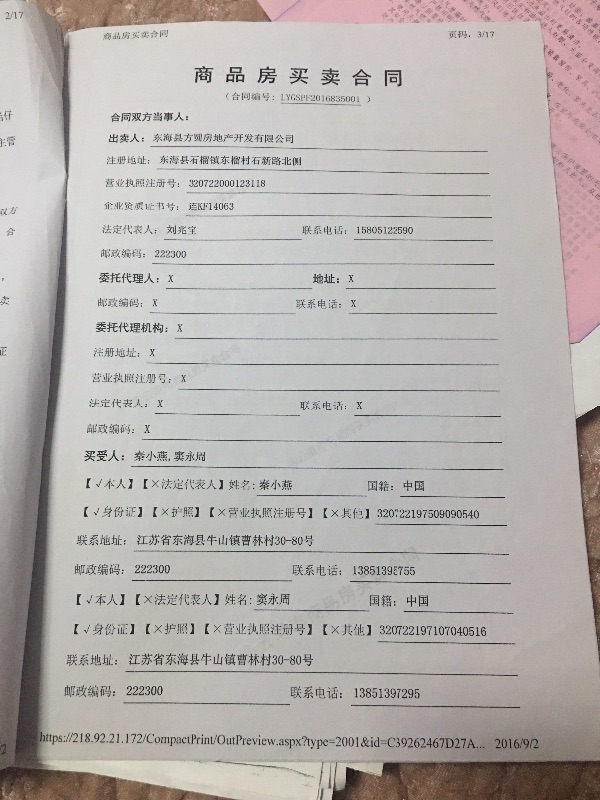 2/17
商品房买卖合同 页码：3/17
商品房买卖合同
（合同编号：LYGSPF2016835001）
合同双方当事人：
出卖人：东海县方圆房地产开发有限公司
注册地址：东海县石榴镇东榴村石新路北侧
营业执照注册号：320722000123118
企业资质证书号：连KF14063
法定代表人：刘兆宝 联系电话：15805122590
邮政编码：222300
委托代理人：X 地址：X
邮政编码：X 联系电话：X
委托代理机构：X
注册地址：X
营业执照注册号：X
法定代表人：X 联系电话：X
邮政编码：X
买受人：秦小燕,窦永周
【√本人】【×法定代表人】姓名：秦小燕 国籍：中国
【√身份证】【×护照】【×营业执照注册号】【×其他】320722197509090540
联系地址：江苏省东海县牛山镇曹林村30-80号
邮政编码：222300 联系电话：13851395755
【√本人】【×法定代表人】姓名：窦永周 国籍：中国
【√身份证】【×护照】【×营业执照注册号】【×其他】320722197107040516
联系地址：江苏省东海县牛山镇曹林村30-80号
邮政编码：222300 联系电话：13851397295
https://218.92.21.172/CompactPrint/OutPreview.aspx?type=2001&id=C39262467D27A... 2016/9/2